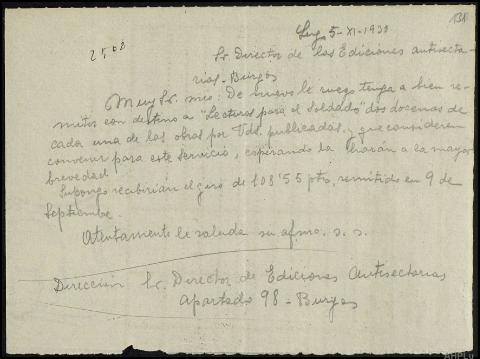 131
Lugo 5-XI-1938
2,50
Sr. Director de las Ediciones antisecta-
rias - Burgos
Muy Sr. mio: De nuevo le ruego tenga a bien re-
mitir con destino a "Lecturas para el Soldado" dos docenas de
cada una de las obras por Vds. publicadas, y que consideren
convenir para este servicio, esperando la harán a la mayor
brevedad.
Supongo recibirían el giro de 108'55 pts, remitido en 9 de
Septiembre.
Atentamente le saluda su afmo. s. s.
Dirección Sr. Director de Ediciones Antisectarias
Apartado 98 - Burgos
AHPLu